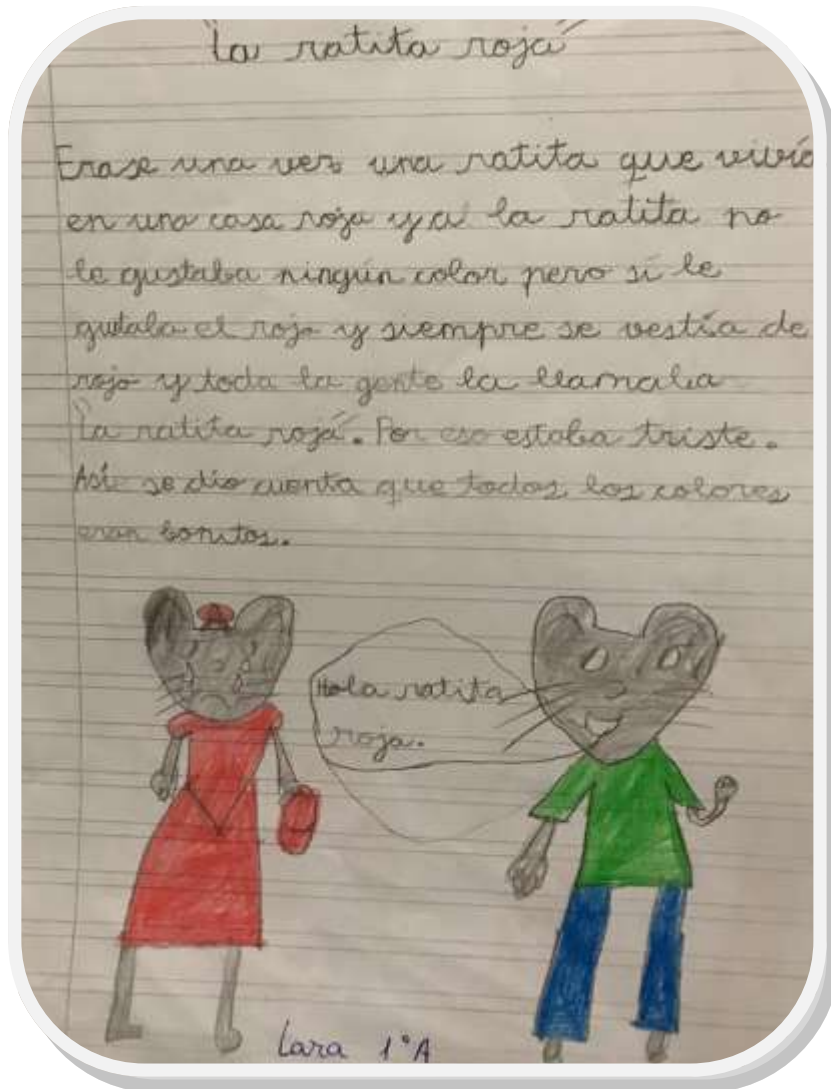 "La ratita roja"
Erase una vez una ratita que vivía
en una casa roja y a la ratita no
le gustaba ningún color pero sí le
gutaba el rojo y siempre se vestía de
rojo y toda la gente la llamaba
"La ratita roja". Por eso estaba triste.
Así se dio cuenta que todos los colores
eran bonitos.
Hola ratita
roja.
Lara 1°A